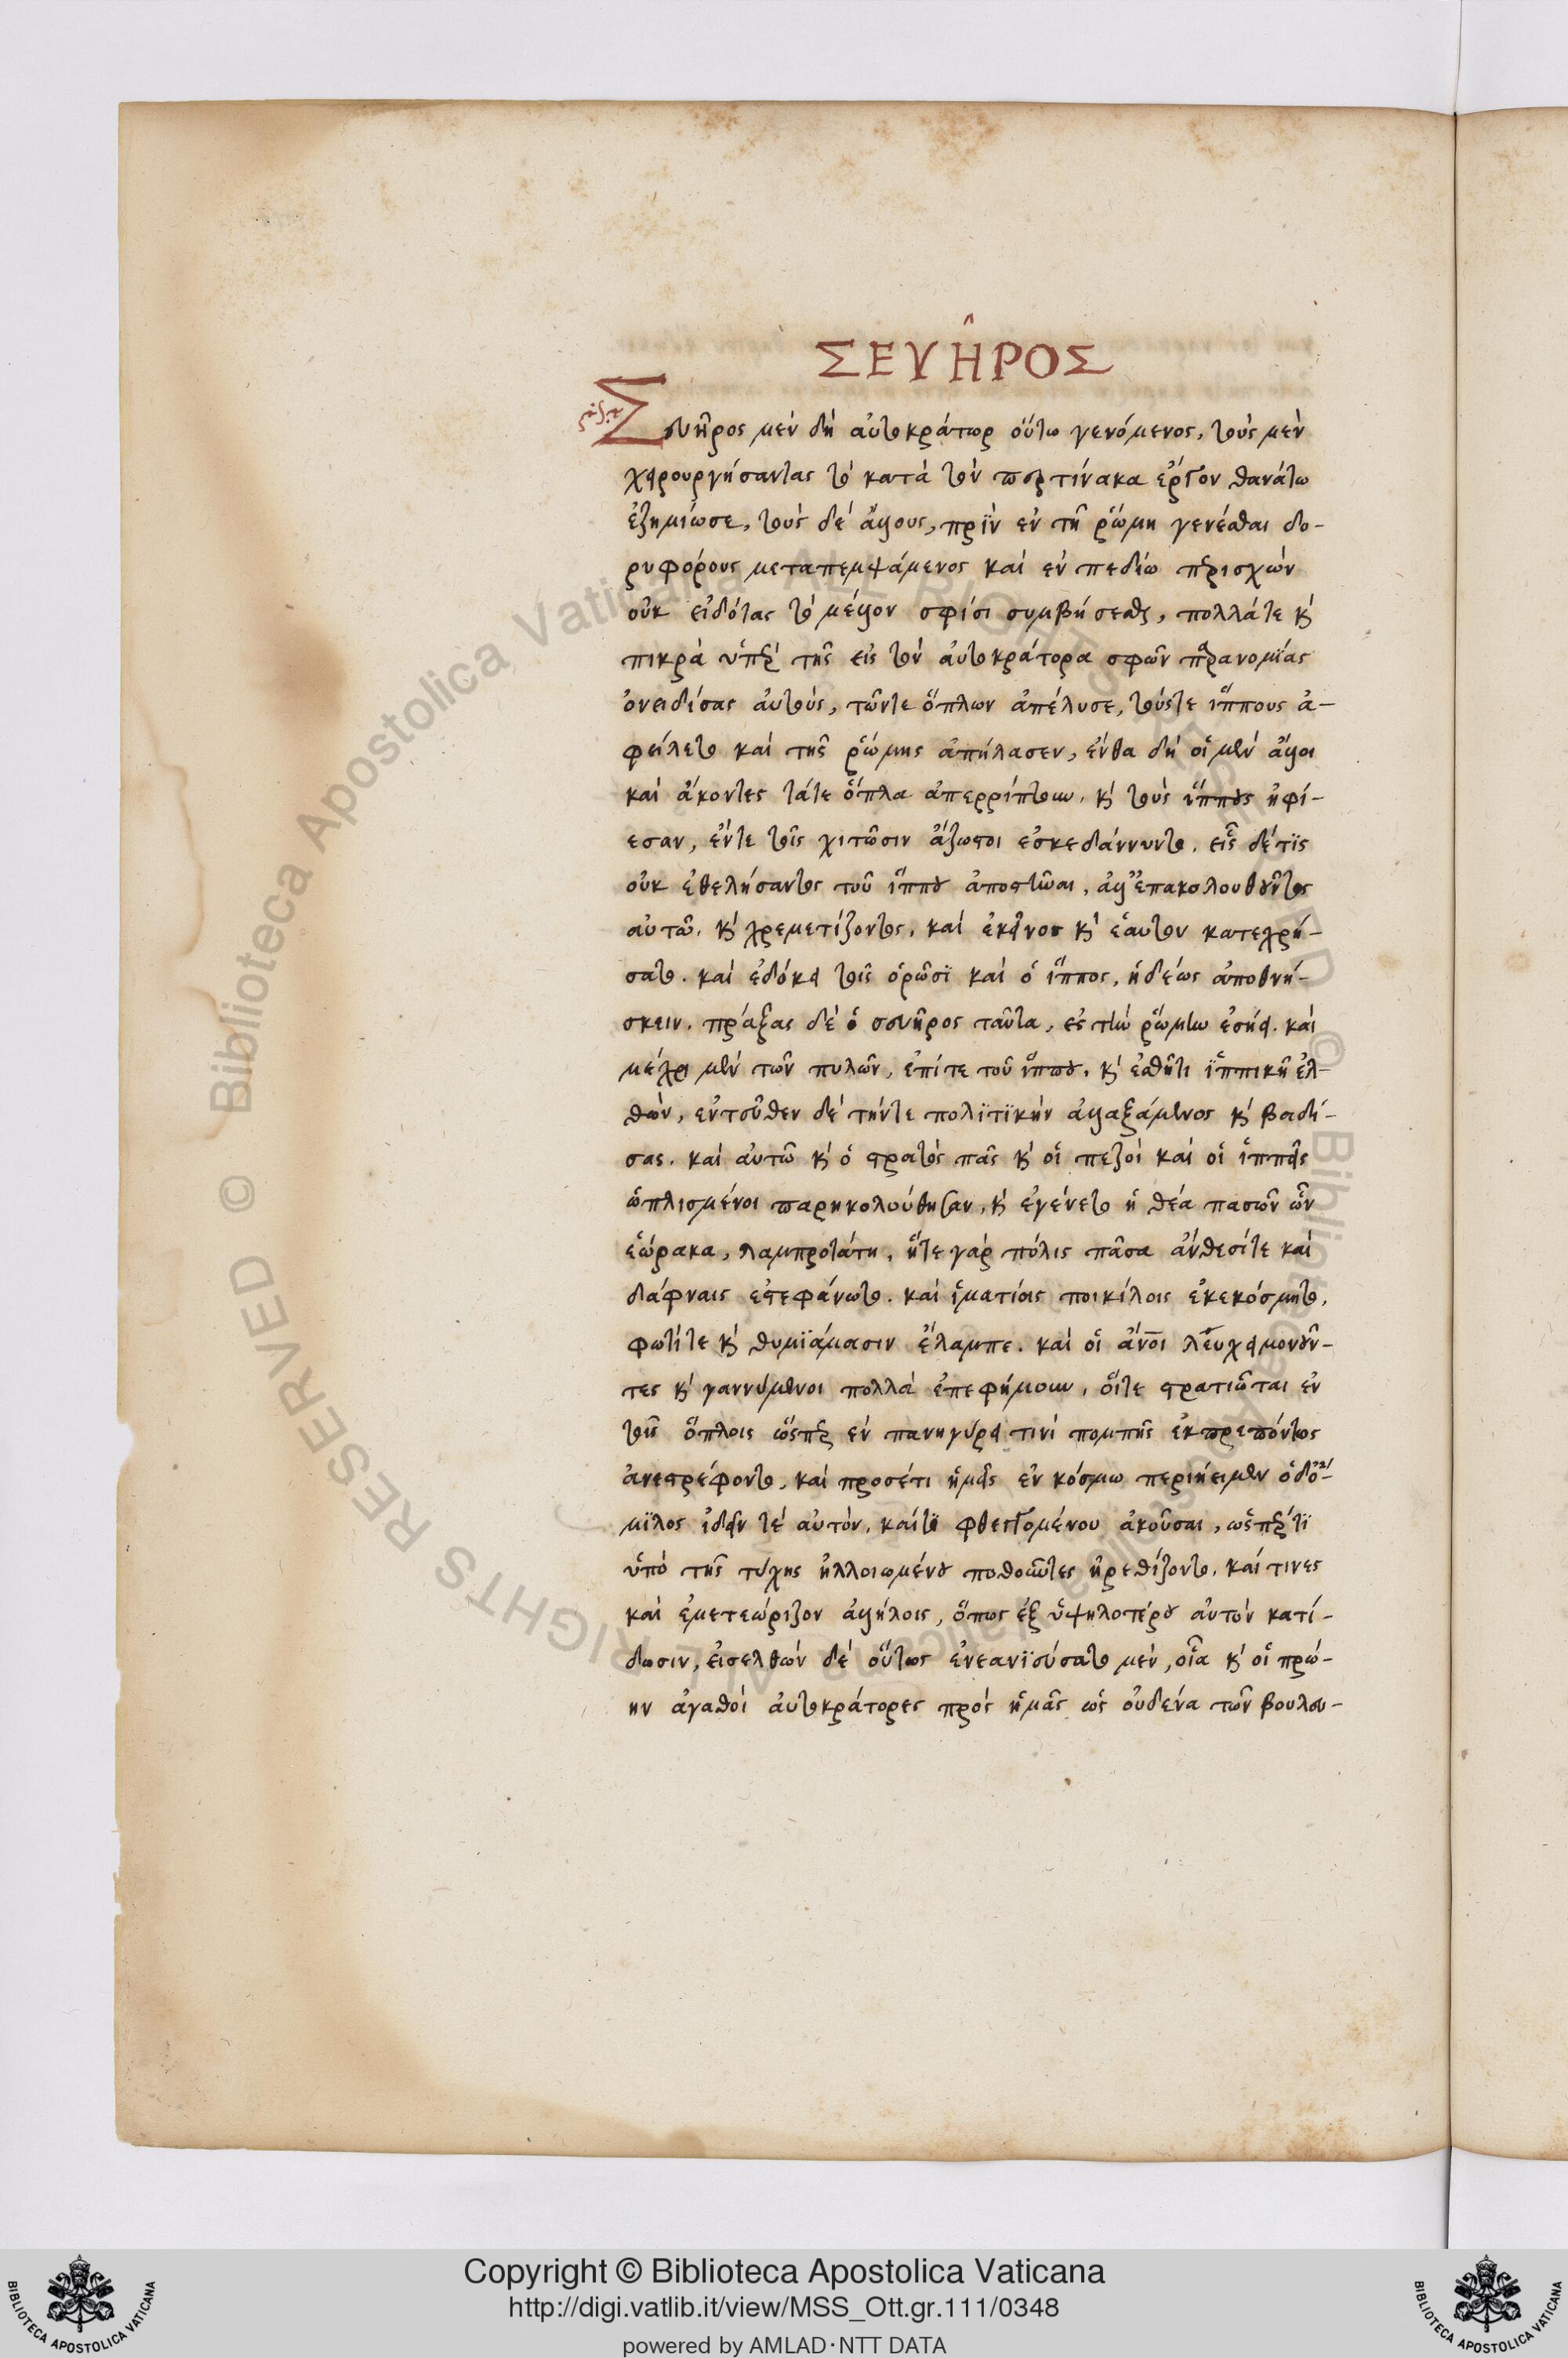 ΣΕΥΗ͂ΡΟΣ
Σευῆρος μὲν δὴ αὐτοκράτωρ οὕτω γενόμενος, τοὺς μὲν
χειρουργήσαντας τὸ κατὰ τὸν περτίνακα ἔργον θανάτω
ἐζημίωσε, τοὺς δὲ ἄλλους, πρὶν ἐν τῆ ῥώμη γενέσθαι δο-
ρυφόρους μεταπεμψάμενος καὶ ἐν πεδίω περισχὼν
οὐκ εἰδότας τὸ μέλλον σφίσι συμβήσεσθαι, πολλά τε κ̀
πικρὰ ὑπὲρ τῆς εἰς τὸν αὐτοκράτορα σφῶν παρανομίας
ὀνειδίσας αὐτοὺς, τῶν τε ὅπλων ἀπέλυσε, τούς τε ἵππους ἀ-
φείλετο καὶ τῆς ῥώμης ἀπήλασεν, ἔνθα δὴ οἱ μὲν ἄλλοι
καὶ ἄκοντες τά τε ὅπλα ἀπερρίπτουν. κ̀ τοὺς ἵππους ἠφί-
εσαν, ἔν τε τοῖς χιτῶσιν ἄζωστοι ἐσκεδάννυντο. εἷς δέ τϊς
οὐκ ἐθελήσαντος τοῦ ἵππου ἀποστῆναι, ἀλλ' ἐπακολουθοῦντος
αὐτῶ. κ̀ χρεμετίζοντος. καὶ ἐκεῖνον κ̀ ἑαυτὸν κατεχρή-
σατο. καὶ ἐδόκει τοῖς ὁρῶσϊ καὶ ὁ ἵππος, ἡδέως ἀποθνή-
σκειν. πράξας δὲ ὁ σευῆρος ταῦτα, ἐς τὴν ῥώμην ἐσήει. καὶ
μέχρι μὲν τῶν πυλῶν, ἐπί τε τοῦ ἵππου. κ̀ ἐσθῆτι ἱππικῆ ἐλ-
θὼν, ἐντεῦθεν δὲ τήν τε πολϊτϊκὴν ἀλλαξάμενος κ̀ βαδί-
σας. καὶ αὐτῶ κ̀ ὁ στρατὸς πᾶς κ̀ οἱ πεζοὶ καὶ οἱ ἱππεῖς
ὡπλισμένοι παρηκολούθησαν. κ̀ ἐγένετο ἡ θέα πασῶν ὧν
ἑώρακα, λαμπροτάτη. ἥ τε γὰρ πόλις πᾶσα ἄνθεσί τε καὶ
δάφναις ἐστεφάνωτο. καὶ ἱματίοις ποικίλοις ἐκεκόσμητο.
φωτί τε κ̀ θυμϊάμασιν ἔλαμπε. καὶ οἱ ἄνοι λευχειμονοῦν-
τες κ̀ γαννύμενοι πολλὰ ἐπεφήμουν, οἵ τε στρατιῶται ἐν
τοῖς ὅπλοις ὥσπερ ἐν πανηγύρει τινὶ πομπῆς ἐκπρεπόντως
ἀνεστρέφοντο, καὶ προσέτι ἡμεῖς ἐν κόσμω περιήειμεν ὁ δὸ-
μϊλος ἰδεῖν τὲ αὐτὸν. καί τϊ φθεγγομένου ἀκοῦσαι, ὥσπερ τϊ
ὑπὸ τῆς τύχης ἠλλοιωμένου ποθοῦντες ἠρεθίζοντο. καί τινες
καὶ ἐμετεώριζον ἀλλήλοις, ὅπως ἐξ ὑψηλοτέρου αὐτὸν κατί-
δωσιν, εἰσελθὼν δὲ οὕτως ἐνεανϊεύσατο μὲν, οἷα κ̀ οἱ πρώ-
ην ἀγαθοὶ αὐτοκράτορες πρὸς ἡμᾶς ὡς οὐδένα τῶν βουλευ-
Copyright © Biblioteca Apostolica Vaticana
http://digi.vatlib.it/view/MSS_Ott.gr.111/0348
powered by AMLAD·NTT DATA
BIBLIOTECA APOSTOLICA VATICANA
BIBLIOTECA APOSTOLICA VATICANA
Biblioteca Apostolica Vaticana ALL RIGHTS RESERVED ©
Biblioteca Apostolica Vaticana ALL RIGHTS RESERVED ©